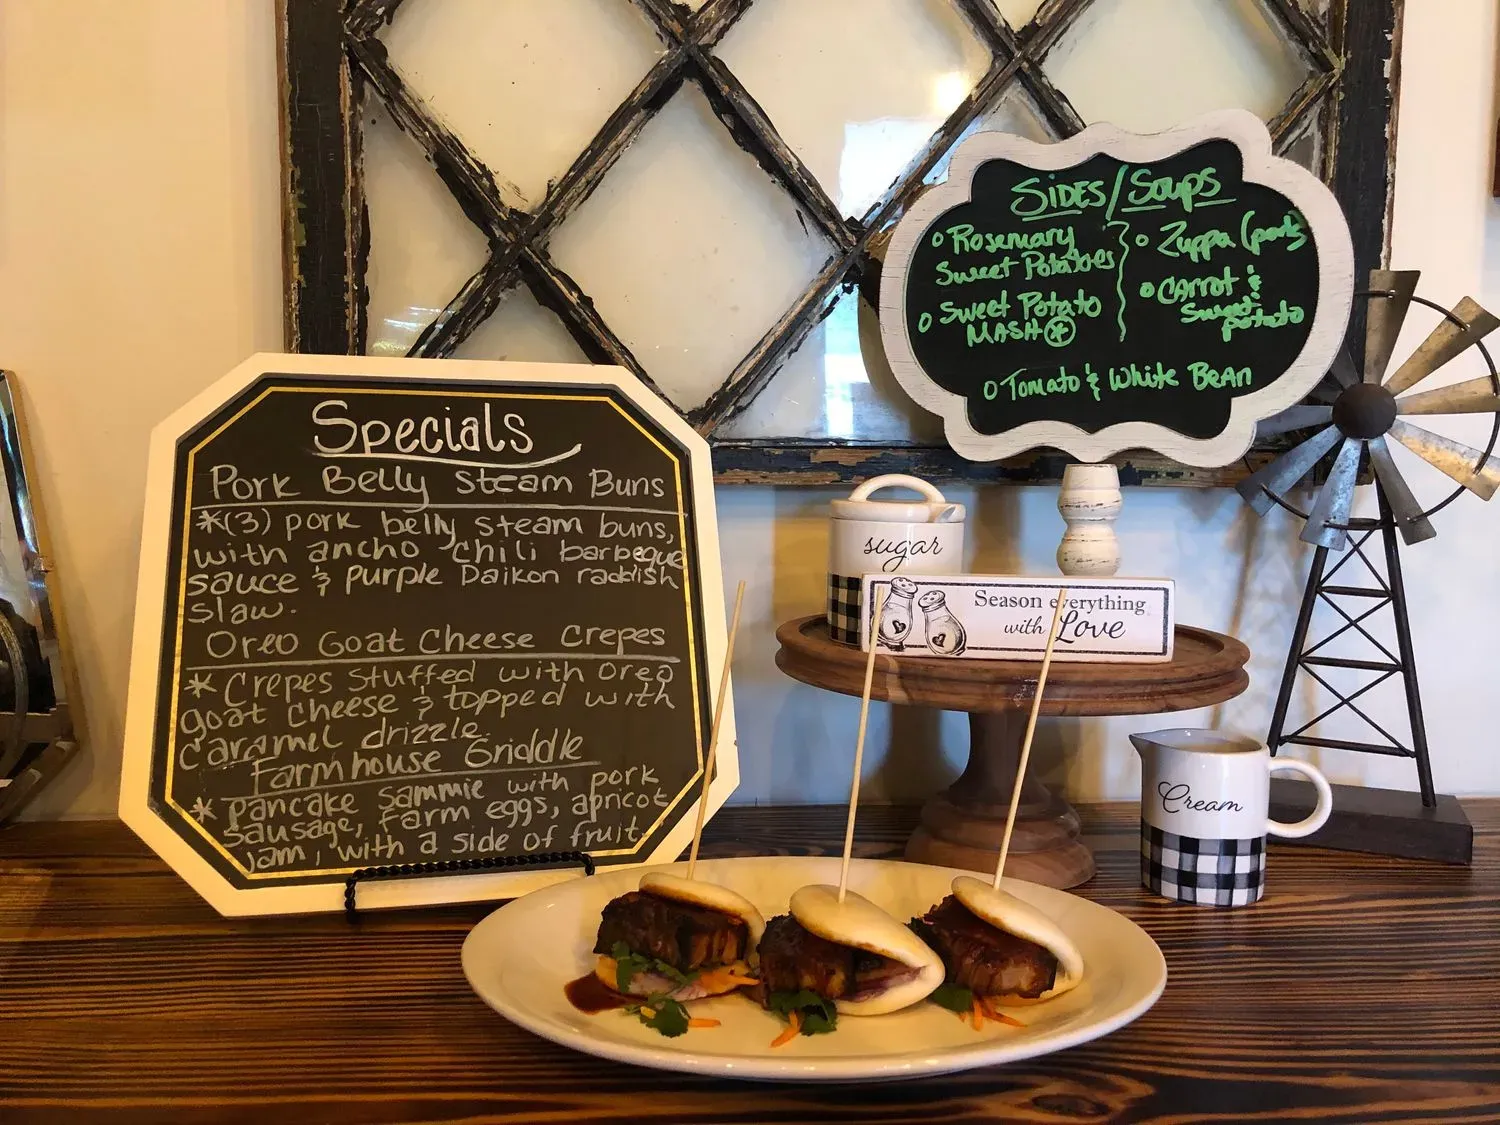 Specials
Pork Belly Steam Buns
*(3) pork belly steam buns,
with ancho chili barbeque
sauce & purple Daikon raddish
slaw.
Oreo Goat Cheese Crepes
* Crepes stuffed with oreo
goat cheese & topped with
caramel drizzle
Farmhouse Griddle
* pancake sammie with pork
sausage, farm eggs, apricot
jam, with a side of fruit.
SIDES/Soups
o Rosemary
Sweet Potatoes
o Sweet Potato
MASH *
o Zuppa (pork)
o CArrot &
Sweet
potato
o Tomato & White BeAn
sugar
Season everything
with Love
Cream